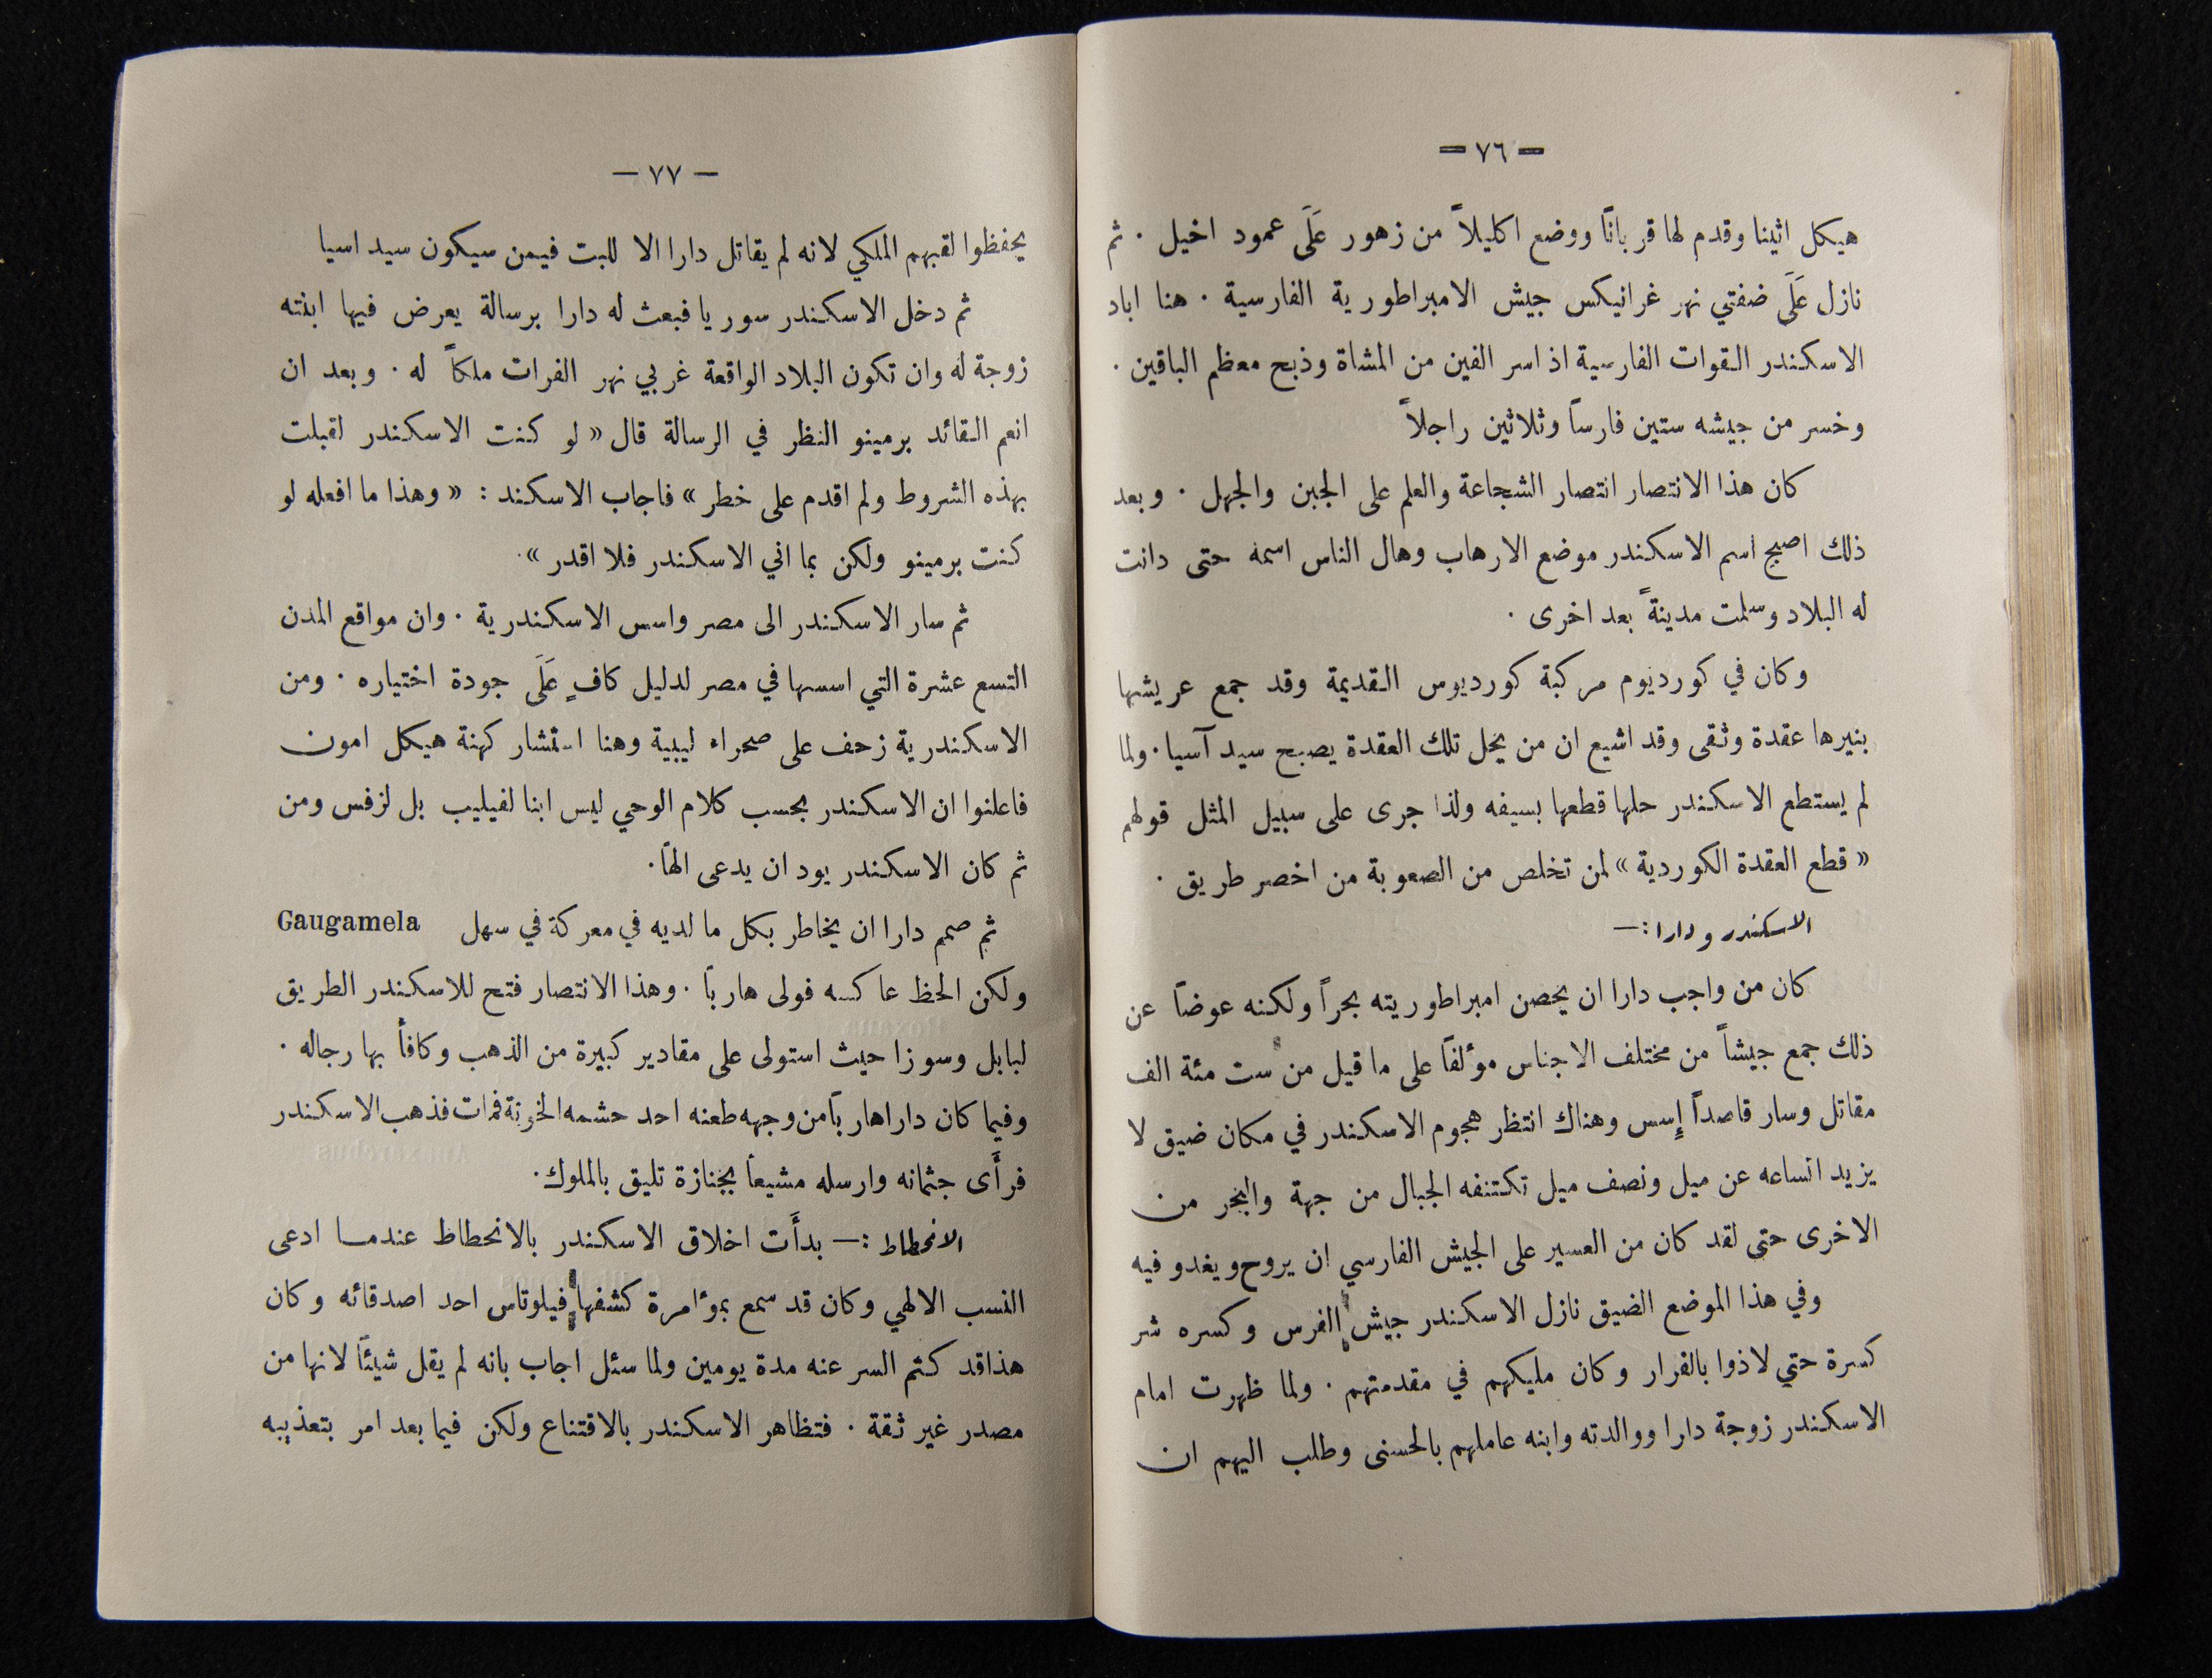 — ٧٦ —
هيكل اثينا وقدم لها قربانًا ووضع اكليلاً من زهور عَلَى عمود اخيل . ثم
نازل عَلَى ضفتي نهر غرانيكس جيش الامبراطورية الفارسية . هنا اباد
الاسكندر القوات الفارسية اذ اسر الفين من المشاة وذبح معظم الباقين .
وخسر من جيشه ستين فارساً وثلاثين راجلاً
كان هذا الانتصار انتصار الشجاعة والعلم على الجبن والجهل . وبعد
ذلك اصبح اسم الاسكندر موضع الارهاب وهال الناس اسمه حتى دانت
له البلاد وسلمت مدينةً بعد اخرى .
وكان في كورديوم مركبة كورديوس القديمة وقد جمع عريشها
بنيرها عقدة وثقى وقد اشيع ان من يحل تلك العقدة يصبح سيد آسيا . ولما
لم يستطع الاسكندر حلها قطعها بسيفه ولذا جرى على سبيل المثل قولهم
« قطع العقدة الكوردية » لمن تخلص من الصعوبة من اخصر طريق .
الاسكندر و دارا : —
كان من واجب دارا ان يحصن امبراطوريته بحراً ولكنه عوضاً عن
ذلك جمع جيشاً من مختلف الاجناس مؤلفًا على ما قيل من ست مئة الف
مقاتل وسار قاصداً إسس وهناك انتظر هجوم الاسكندر في مكان ضيق لا
يزيد اتساعه عن ميل ونصف ميل تكتنفه الجبال من جهة والبحر من
الاخرى حتى لقد كان من العسير على الجيش الفارسي ان يروح ويغدو فيه
وفي هذا الموضع الضيق نازل الاسكندر جيش الفرس وكسره شر
كسرة حتي لاذوا بالفرار وكان مليكهم في مقدمتهم . ولما ظهرت امام
الاسكندر زوجة دارا ووالدته وابنه عاملهم بالحسنى وطلب اليهم ان
— ٧٧ —
يحفظوا لقبهم الملكي لانه لم يقاتل دارا الا للبت فيمن سيكون سيد اسيا
ثم دخل الاسكندر سوريا فبعث له دارا برسالة يعرض فيها ابنته
زوجة له وان تكون البلاد الواقعة غربي نهر الفرات ملكاً له . وبعد ان
انعم القائد برمينو النظر في الرسالة قال « لو كنت الاسكندر لقبلت
بهذه الشروط ولم اقدم على خطر » فاجاب الاسكند : « وهذا ما افعله لو
كنت برمينو ولكن بما اني الاسكندر فلا اقدر » .
ثم سار الاسكندر الى مصر واسس الاسكندرية . وان مواقع المدن
التسع عشرة التي اسسها في مصر لدليل كافٍ عَلَى جودة اختياره . ومن
الاسكندرية زحف على صحراء ليبية وهنا استشار كهنة هيكل امون
فاعلنوا ان الاسكندر بحسب كلام الوحي ليس ابنا لفيليب بل لزفس ومن
ثم كان الاسكندر يود ان يدعى الهًا .
ثم صمم دارا ان يخاطر بكل ما لديه في معركة في سهل Gaugamela
ولكن الحظ عاكسه فولى هاربًا . وهذا الانتصار فتح للاسكندر الطريق
لبابل وسوزا حيث استولى على مقادير كبيرة من الذهب وكافأ بها رجاله .
وفيما كان دارا هاربًا من وجهه طعنه احد حشمه الخونة فمات فذهب الاسكندر
فرأَى جثمانه وارسله مشيعاً بجنازة تليق بالملوك .
الانحطاط : — بدأَت اخلاق الاسكندر بالانحطاط عندما ادعى
النسب الالهي وكان قد سمع بمؤامرة كشفها فيلوتاس احد اصدقائه وكان
هذا قد كتم السر عنه مدة يومين ولما سئل اجاب بانه لم يقل شيئًا لانها من
مصدر غير ثقة . فتظاهر الاسكندر بالاقتناع ولكن فيما بعد امر بتعذيبه